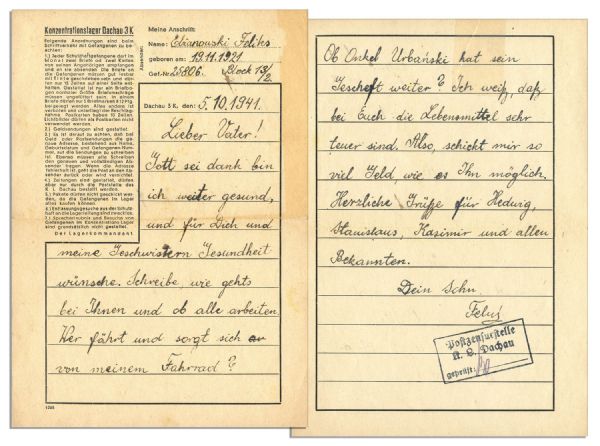 Konzentrationslager Dachau 3 K
Folgende Anordnungen sind beim
Schriftverkehr mit Gefangenen zu be-
achten:
1.) Jeder Schutzhaftgefangene darf im
Monat zwei Briefe od. zwei Karten
von seinen Angehörigen empfangen
und an sie absenden. Die Briefe an
die Gefangenen müssen gut lesbar
mit Tinte geschrieben sein und dür-
fen nur 15 Zeilen auf einer Seite ent-
halten. Gestattet ist nur ein Briefbo-
gen normaler Größe. Briefumschläge
müssen ungefüttert sein. In einem
Briefe dürfen nur 5 Briefmarken à 12 Pfg.
beigelegt werden. Alles andere ist
verboten und unterliegt der Beschlag-
nahme. Postkarten haben 10 Zeilen.
Lichtbilder dürfen als Postkarten nicht
verwendet werden.
2.) Geldsendungen sind gestattet.
3.) Es ist darauf zu achten, daß bei
Geld- oder Postsendungen die genaue
Adresse, bestehend aus Name,
Geburtsdatum und Gefangenen-Num-
mer, auf die Sendungen zu schreiben
ist.
4.) Zeitungen sind gestattet, dürfen
aber nur durch die Poststelle des
K. L. Dachau bestellt werden.
5.) Pakete dürfen nicht geschickt werden,
da die Gefangenen im Lager
alles kaufen können.
6.) Entlassungsgesuche aus der Schutz-
haft an die Lagerleitung sind zwecklos.
7.) Sprecherlaubnis und Besuche von
Gefangenen im Konzentrations-Lager
sind grundsätzlich nicht gestattet.
Der Lagerkommandant
Absender:
Meine Anschrift:
Name: Feliks
geboren am: 19.11.1921
Gef.-Nr. 25806. Block 13/2
Dachau 3 K, den: 5.10.1941.
Lieber Vater!
Gott sei dank bin
ich weiter gesund,
und für Dich und
meine Geschwistern Gesundheit
wünsche. Schreibe, wie gehts
bei Ihnen und ob alle arbeiten.
Wer fährt und sorgt sich
von meinem Fahrrad?
Ob Onkel Urbański hat sein
Gescheft weiter? Ich weiß, daß
bei Euch die Lebensmittel sehr
teuer sind. Also, schickt mir so
viel Geld, wie es Ihn möglich.
Herzliche Grüße für Hedwig,
Stanislaus, Kasimir und allen
Bekannten.
Dein Sohn.
Feluś
Postzensurstelle
K. L. Dachau
geprüft: